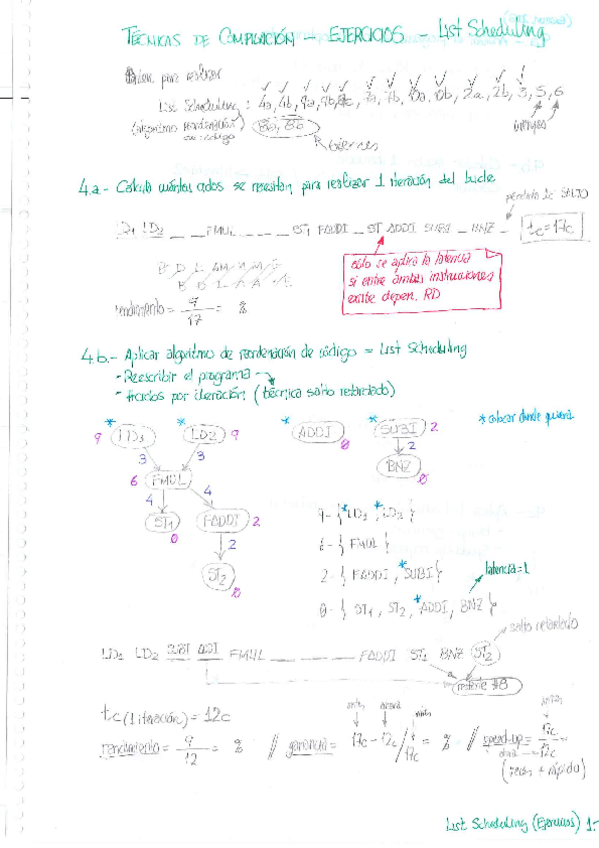 TÉCNICAS DE COMPILACIÓN - EJERCICIOS - List Scheduling
para realizar
List Scheduling : 4a, 4b, 9a, 9b, 9c, 7a, 7b, 10a, 10b, 2a, 2b, 3, 5, 6
(algoritmo reordenación de código) 8a, 8b
4.a.- Calcula cuántos ciclos se necesitan para realizar 1 iteración del bucle
pérdida de SALTO
LD2 _ _ FMUL _ _ _ ST1 FADDI _ ST ADDI SUBI _ BNZ _ tc=17c
sólo se aplica la latencia
si entre ambas instrucciones
existe depen. RD
rendimiento = 9/17 = %
4.b.- Aplicar algoritmo de reordenación de código = List Scheduling
- Reescribir el programa
- ciclos por iteración (técnica salto retardado)
* colocar donde quiera
9 LD1 * LD2 9 * ADDI 0 * SUBI 2
3 3 2
6 FMUL BNZ 0
4 4
ST1 0 FADDI 2
2
ST2 0
9- { LD1, LD2 }
6- { FMUL }
2- { FADDI, SUBI }
latencia=1
0- { ST1, ST2, ADDI, BNZ }
salto retardado
LD1 LD2 SUBI ADDI FMUL _ _ _ FADDI ST1 BNZ ST2
#8
tc (1 iteración) = 12c
antes ahora antes antes
rendimiento = 9/12 = % // ganancia = 17c - 12c / 17c = % // speed-up = 17c/12c =
ahora
(veces + rápido)
List Scheduling (Ejercicios) 1.-